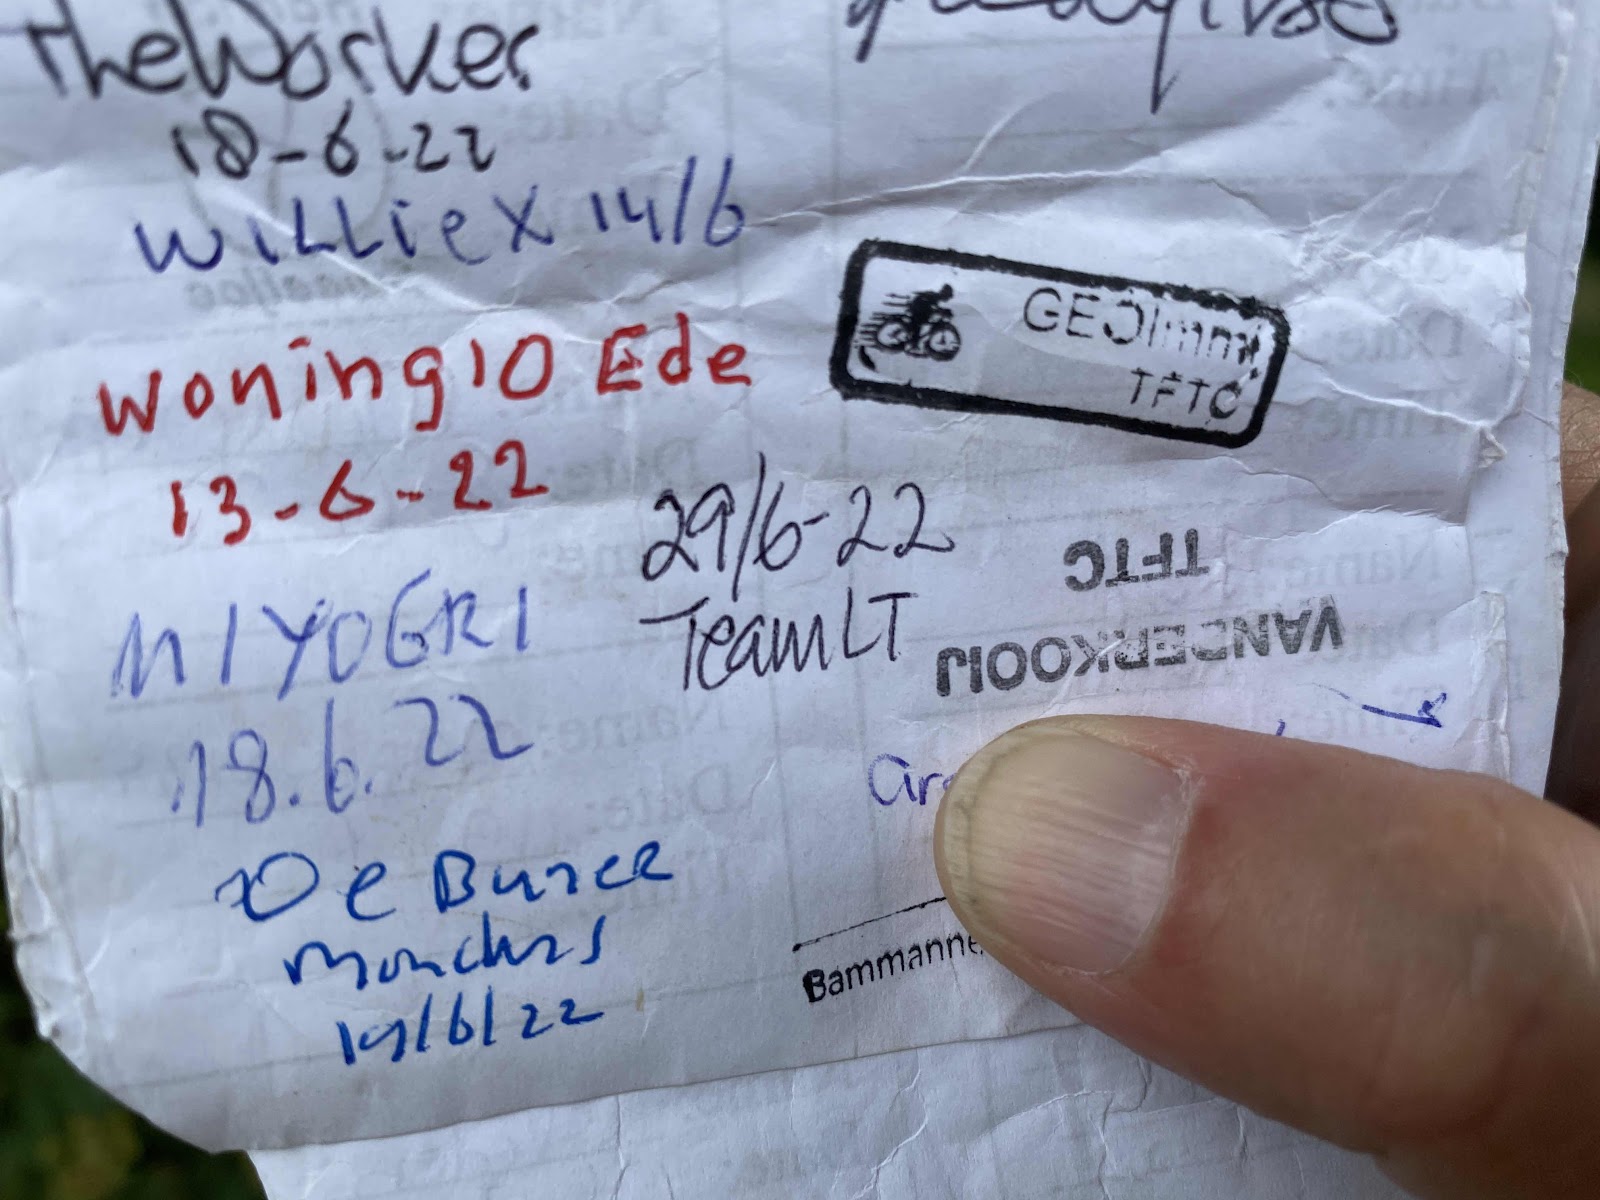 TheWorker
18-6-22
WILLieX 14/6
Woning10 Ede
13-6-22
MIYOGRI
18.6.22
De Buzee
19/6/22
GEOJimmy
TFTC
29/6-22
TeamLT
VANDERKOOIJ
TFTC
Bammanne